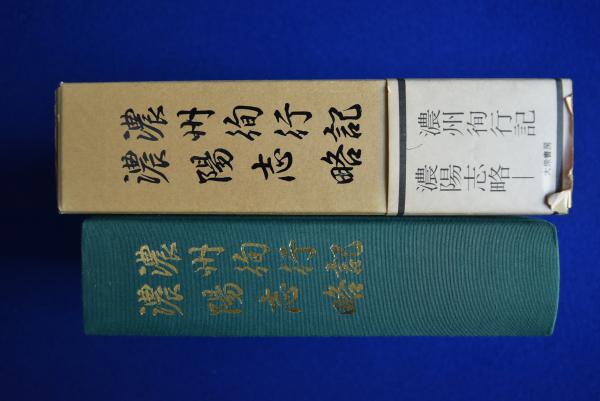 濃州徇行記
濃陽志略
濃州徇行記
濃陽志略
大衆書房
濃州徇行記
濃陽志略